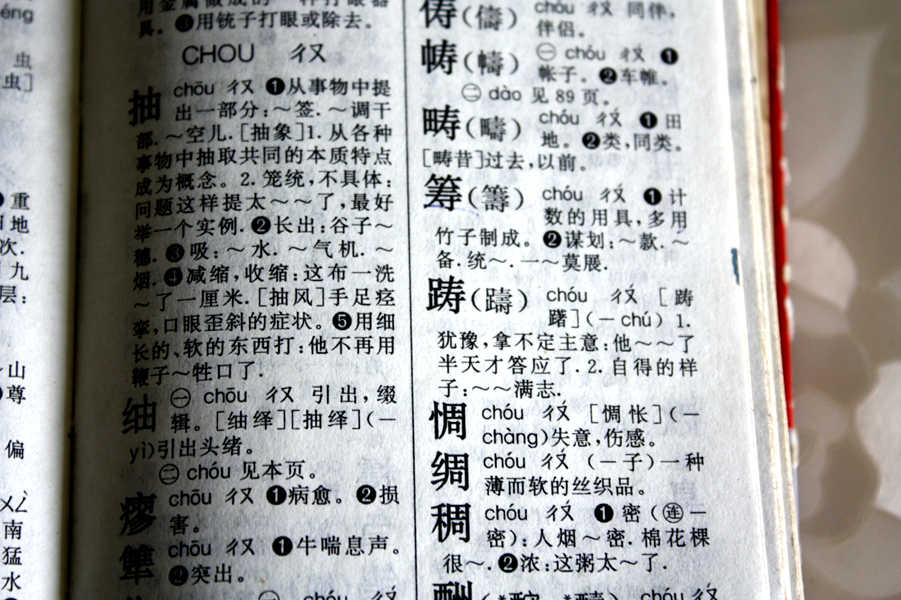 éng
虫
虫]
重
地
次.
九
层:
山
尊
偏
ㄨㄥˋ
南
猛
水
具。❸用铳子打眼或除去。
CHOU ㄔㄡ
抽 chōu ㄔㄡ ❶从事物中提
出一部分:～签.～调干
部.～空儿.[抽象]1.从各种
事物中抽取共同的本质特点
成为概念。2.笼统,不具体:
问题这样提太～～了,最好
举一个实例.❷长出:谷子～
穗.❸吸:～水.～气机.～
烟.❹减缩,收缩:这布一洗
～了一厘米.[抽风]手足痉
挛,口眼歪斜的症状。❺用细
长的、软的东西打:他不再用
鞭子～牲口了.
䌷 ㊀ chōu ㄔㄡ 引出,缀
辑。[䌷绎][抽绎](—
yì)引出头绪。
㊁ chóu 见本页。
瘳 chōu ㄔㄡ ❶病愈。❷损
害。
犨 chōu ㄔㄡ ❶牛喘息声。
❷突出。
俦(儔) chóu ㄔㄡˊ 同伴,
伴侣.
帱(幬) ㊀ chóu ㄔㄡˊ ❶
帐子。❷车帷。
㊁ dào 见 89 页。
畴(疇) chóu ㄔㄡˊ ❶田
地。❷类,同类。
[畴昔]过去,以前。
筹(籌) chóu ㄔㄡˊ ❶计
数的用具,多用
竹子制成。❷谋划:～款.～
备.统～.一～莫展.
踌(躊) chóu ㄔㄡˊ [踌
躇](—chú) 1.
犹豫,拿不定主意:他～～了
半天才答应了.2.自得的样
子:～～满志.
惆 chóu ㄔㄡˊ [惆怅](—
chàng)失意,伤感。
绸 chóu ㄔㄡˊ (—子)一种
薄而软的丝织品。
稠 chóu ㄔㄡˊ ❶密(㊣—
密):人烟～密.棉花棵
很～.❷浓:这粥太～了.
chóu ㄔㄡˊ